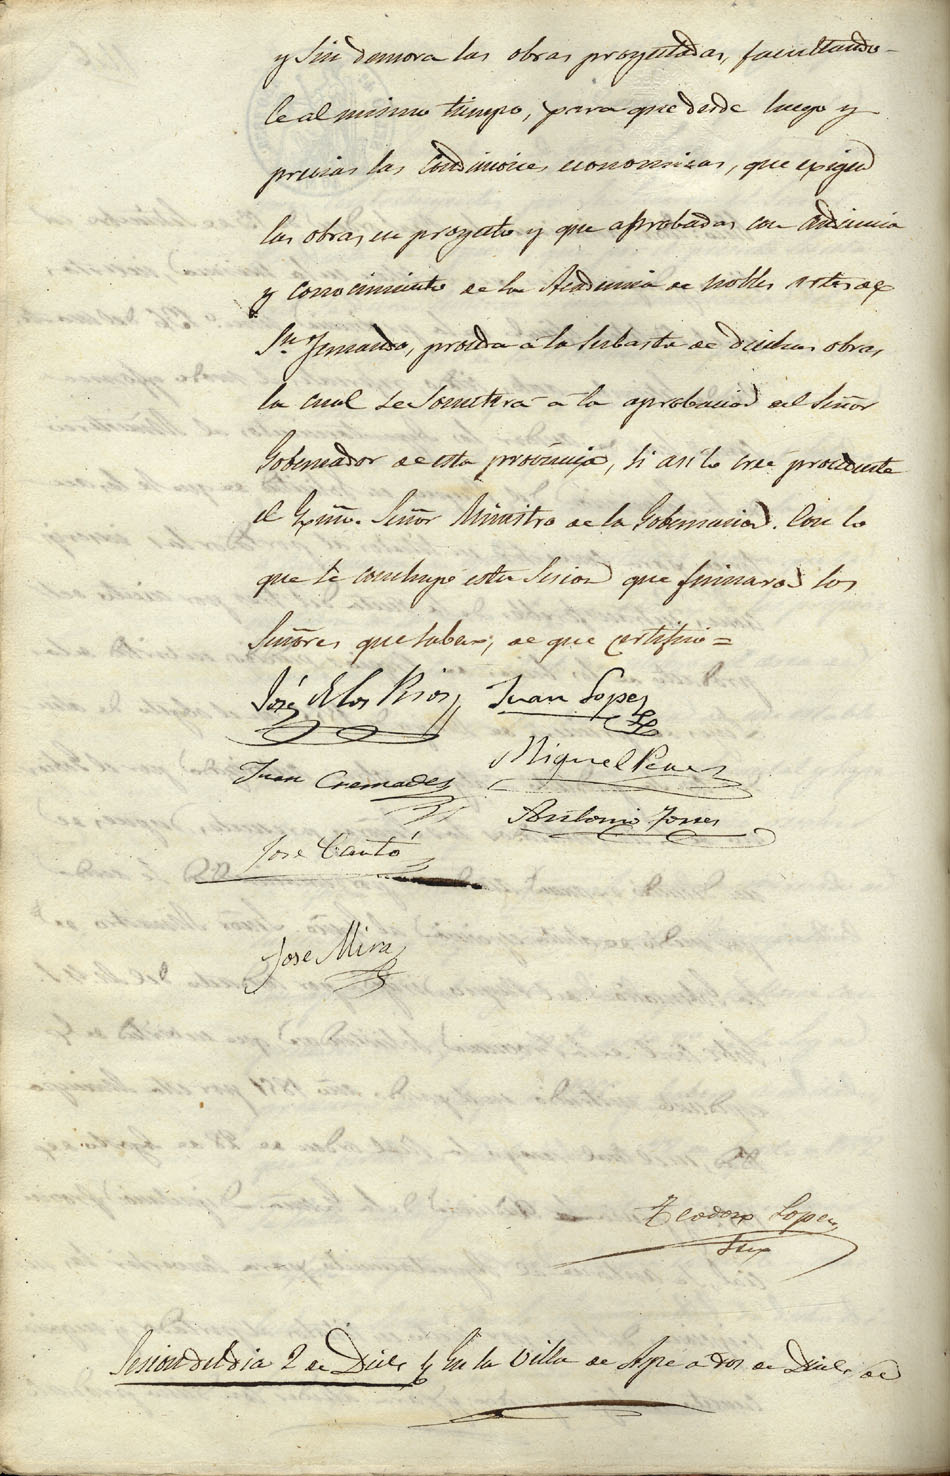 y sin demora las obras proyectadas, facultando-
le al mismo tiempo, para que desde luego y
previas las condiciones economicas, que exigen
las obras en proyecto y que aprobadas con audiencia
y conocimiento de la Academia de nobles artes de
Sn. Fernando, proceda a la subasta de dichas obras
la cual se someterá a la aprobacion del Señor
Gobernador de esta provincia, si asi lo cree procedente
el Exmo. Señor Ministro de la Gobernacion. Con lo
que se concluyó esta sesion que firmaron los
Señores que saben, de que certifico=
José de los Rios Juan Lopez
Miguel Perez
Juan Cremades
Antonio Torres
Jose Cantó
Jose Mira
Teodoro Lopez
Srio
Sesion del dia 2 de Dicbe } En la Villa de Aspe a dos de Dicbe de